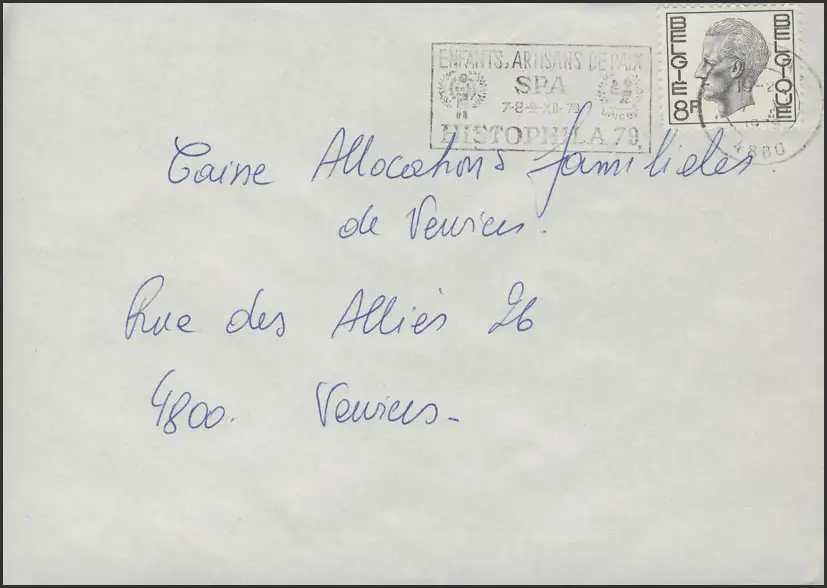 ENFANTS, ARTISANS DE PAIX
SPA
7-8-9-XII-79
HISTOPHILA 79
BELGIE
BELGIQUE
8F
Caisse Allocations familiales
de Verviers.
Rue des Alliés 26
4800. Verviers-